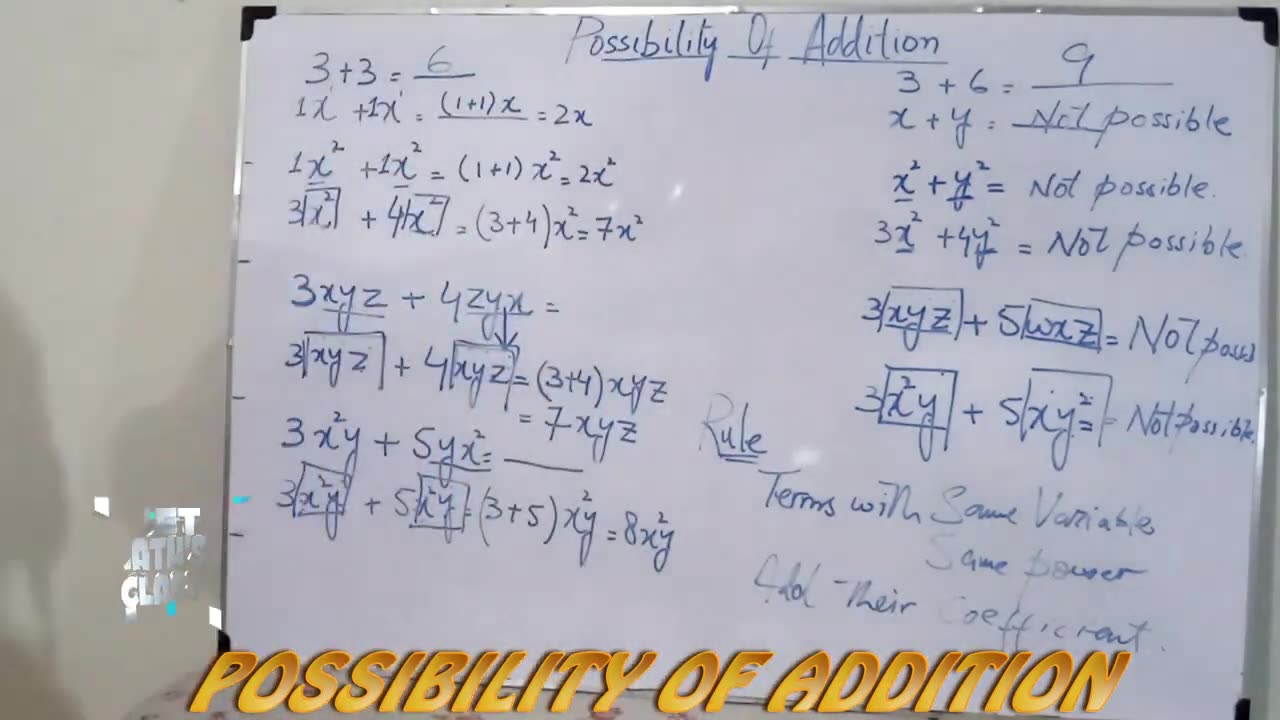 Possibility Of Addition
3+3 = 6
1x + 1x = (1+1)x = 2x
1x² + 1x² = (1+1) x² = 2x²
3x² + 4x² = (3+4)x² = 7x²
3xyz + 4zyx =
3xyz + 4xyz = (3+4)xyz
= 7xyz
3x²y + 5yx² =
3x²y + 5x²y = (3+5)x²y = 8x²y
3 + 6 = 9
x + y = Not possible
x² + y² = Not possible.
3x² + 4y² = Not possible
3xyz + 5wxz = Not poss
3x²y + 5xy² = Not possible.
Rule
Terms with Same Variables
Same power
Add Their Coefficient.
CLASS
POSSIBILITY OF ADDITION